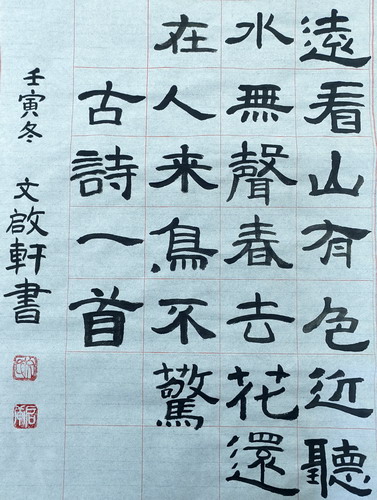 遠看山有色近聽
水無聲春去花還
在人来鳥不驚
古詩一首
壬寅冬 文啟軒書